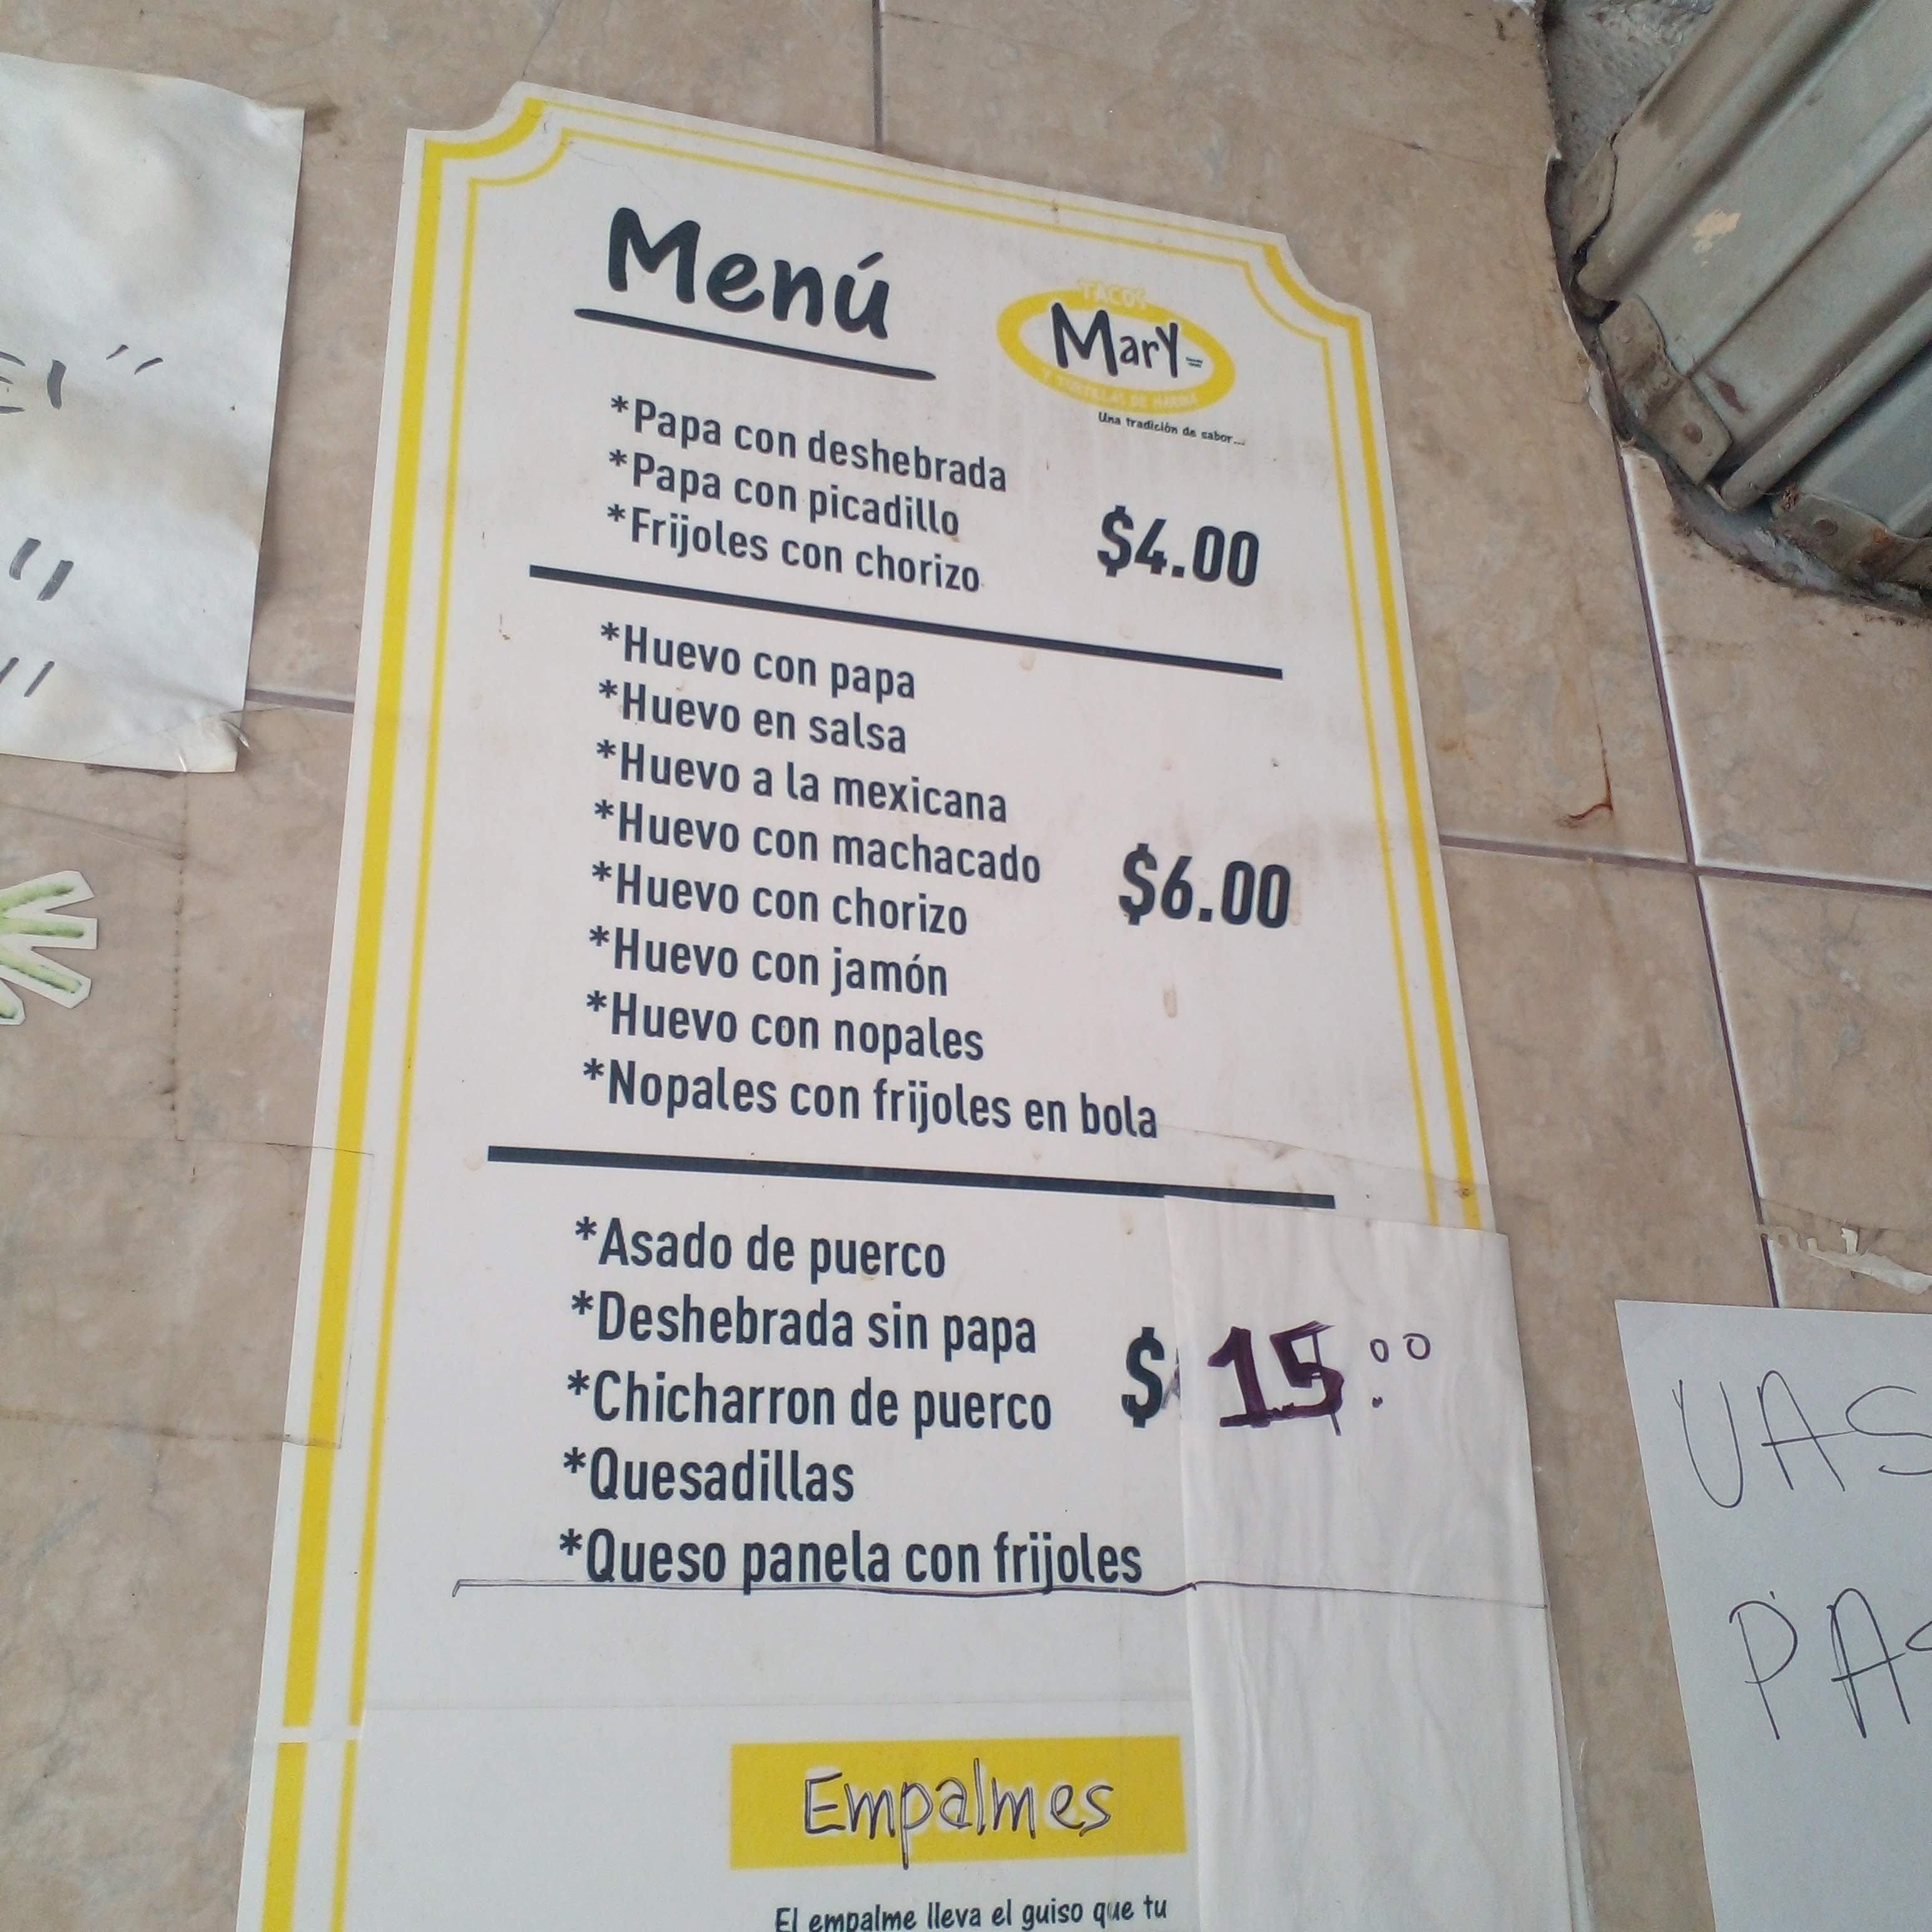 Menú
TACOS
MarY
Y TORTILLAS DE HARINA
Una tradición de sabor...
*Papa con deshebrada
*Papa con picadillo
*Frijoles con chorizo
$4.00
*Huevo con papa
*Huevo en salsa
*Huevo a la mexicana
*Huevo con machacado
*Huevo con chorizo
*Huevo con jamón
*Huevo con nopales
*Nopales con frijoles en bola
$6.00
*Asado de puerco
*Deshebrada sin papa
*Chicharron de puerco
*Quesadillas
*Queso panela con frijoles
$ 15.00
Empalmes
El empalme lleva el guiso que tu